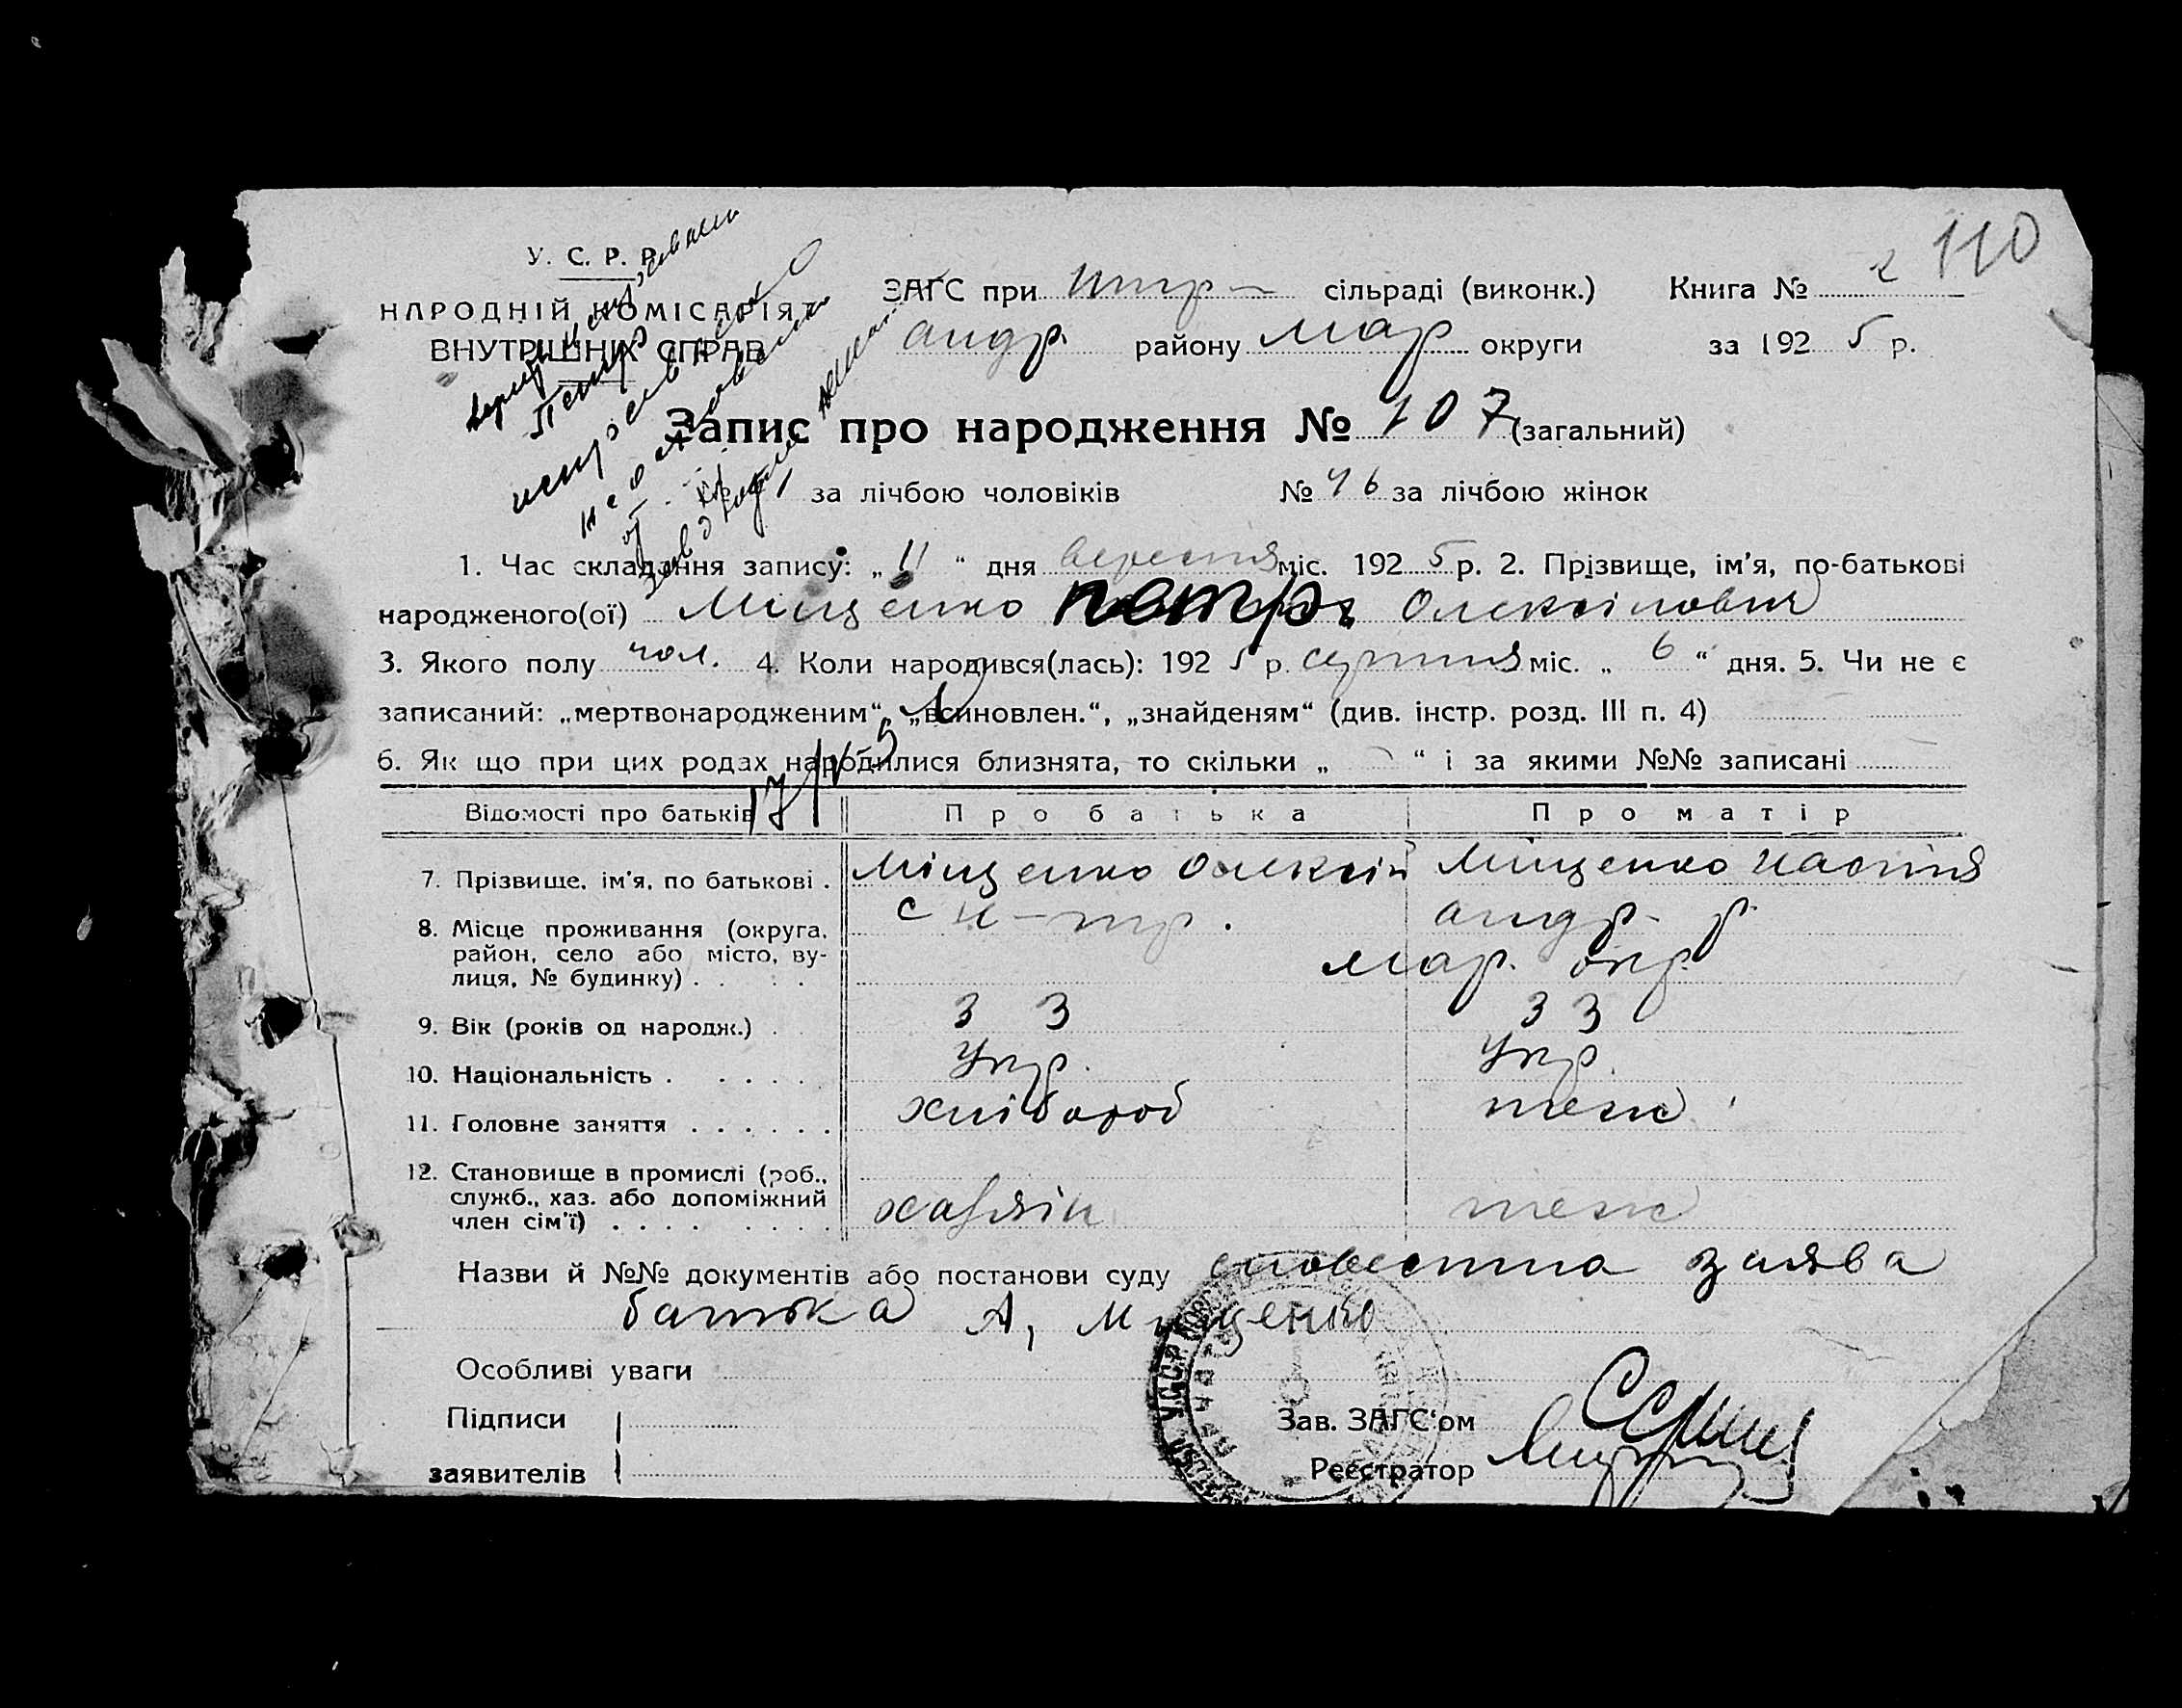 110
У. С. Р. Р.
НАРОДНІЙ КОМІСАРІЯТ
ВНУТРІШНІХ СПРАВ
ЗАГС при сільраді (виконк.) Книга № 2
андр. району мар округи за 1925 р.
Запис про народження № 107 (загальний)
за лічбою чоловіків № 46 за лічбою жінок
1. Час складання запису: „ 11 “ дня вересня міс. 1925 р. 2. Прізвище, ім'я, по-батькові
народженого(ої) Міщенко петр Олексіповня
3. Якого полу чол. 4. Коли народився(лась): 1925 р. серпня міс. „ 6 “ дня. 5. Чи не є
записаний: „мертвонародженим“, „всиновлен.“, „знайденям“ (див. інстр. розд. III п. 4)
6. Як що при цих родах народилися близнята, то скільки „ “ і за якими №№ записані
Відомості про батьків Про батька Про матір
7. Прізвище, ім'я, по батькові . Міщенко Олексій Міщенко Настя
8. Місце проживання (округа, район, село або місто, вулиця, № будинку) . . . . с н-тр. андр. р.
мар. окр.
9. Вік (років од народж.) . 33 33
10. Національність . . . . . . Укр. Укр.
11. Головне заняття . . . . . . хлібороб теж
12. Становище в промислі (роб., служб., хаз. або допоміжний член сім'ї) . . . . . . . . хазяін теж
Назви й №№ документів або постанови суду словестна заява
батька А, Мищенко
Особливі уваги
Підписи
заявителів
Зав. ЗАГС'ом
Реєстратор